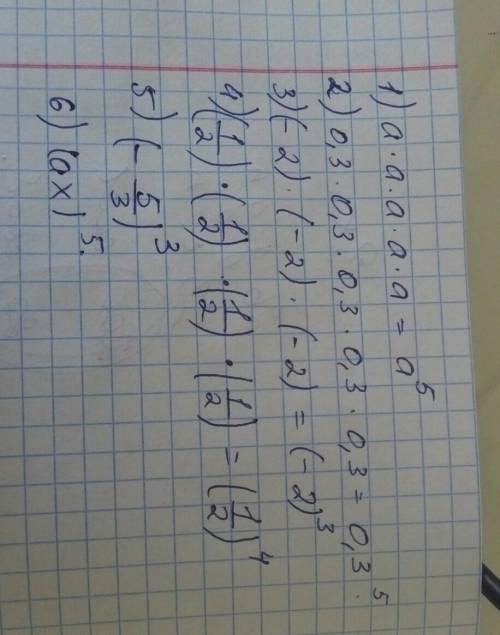 1) a · a · a · a · a = a⁵
2) 0,3 · 0,3 · 0,3 · 0,3 · 0,3 = 0,3⁵.
3) (-2) · (-2) · (-2) = (-2)³
4) (1/2) · (1/2) · (1/2) · (1/2) = (1/2)⁴
5) (-5/3)³
6) (ax)⁵.